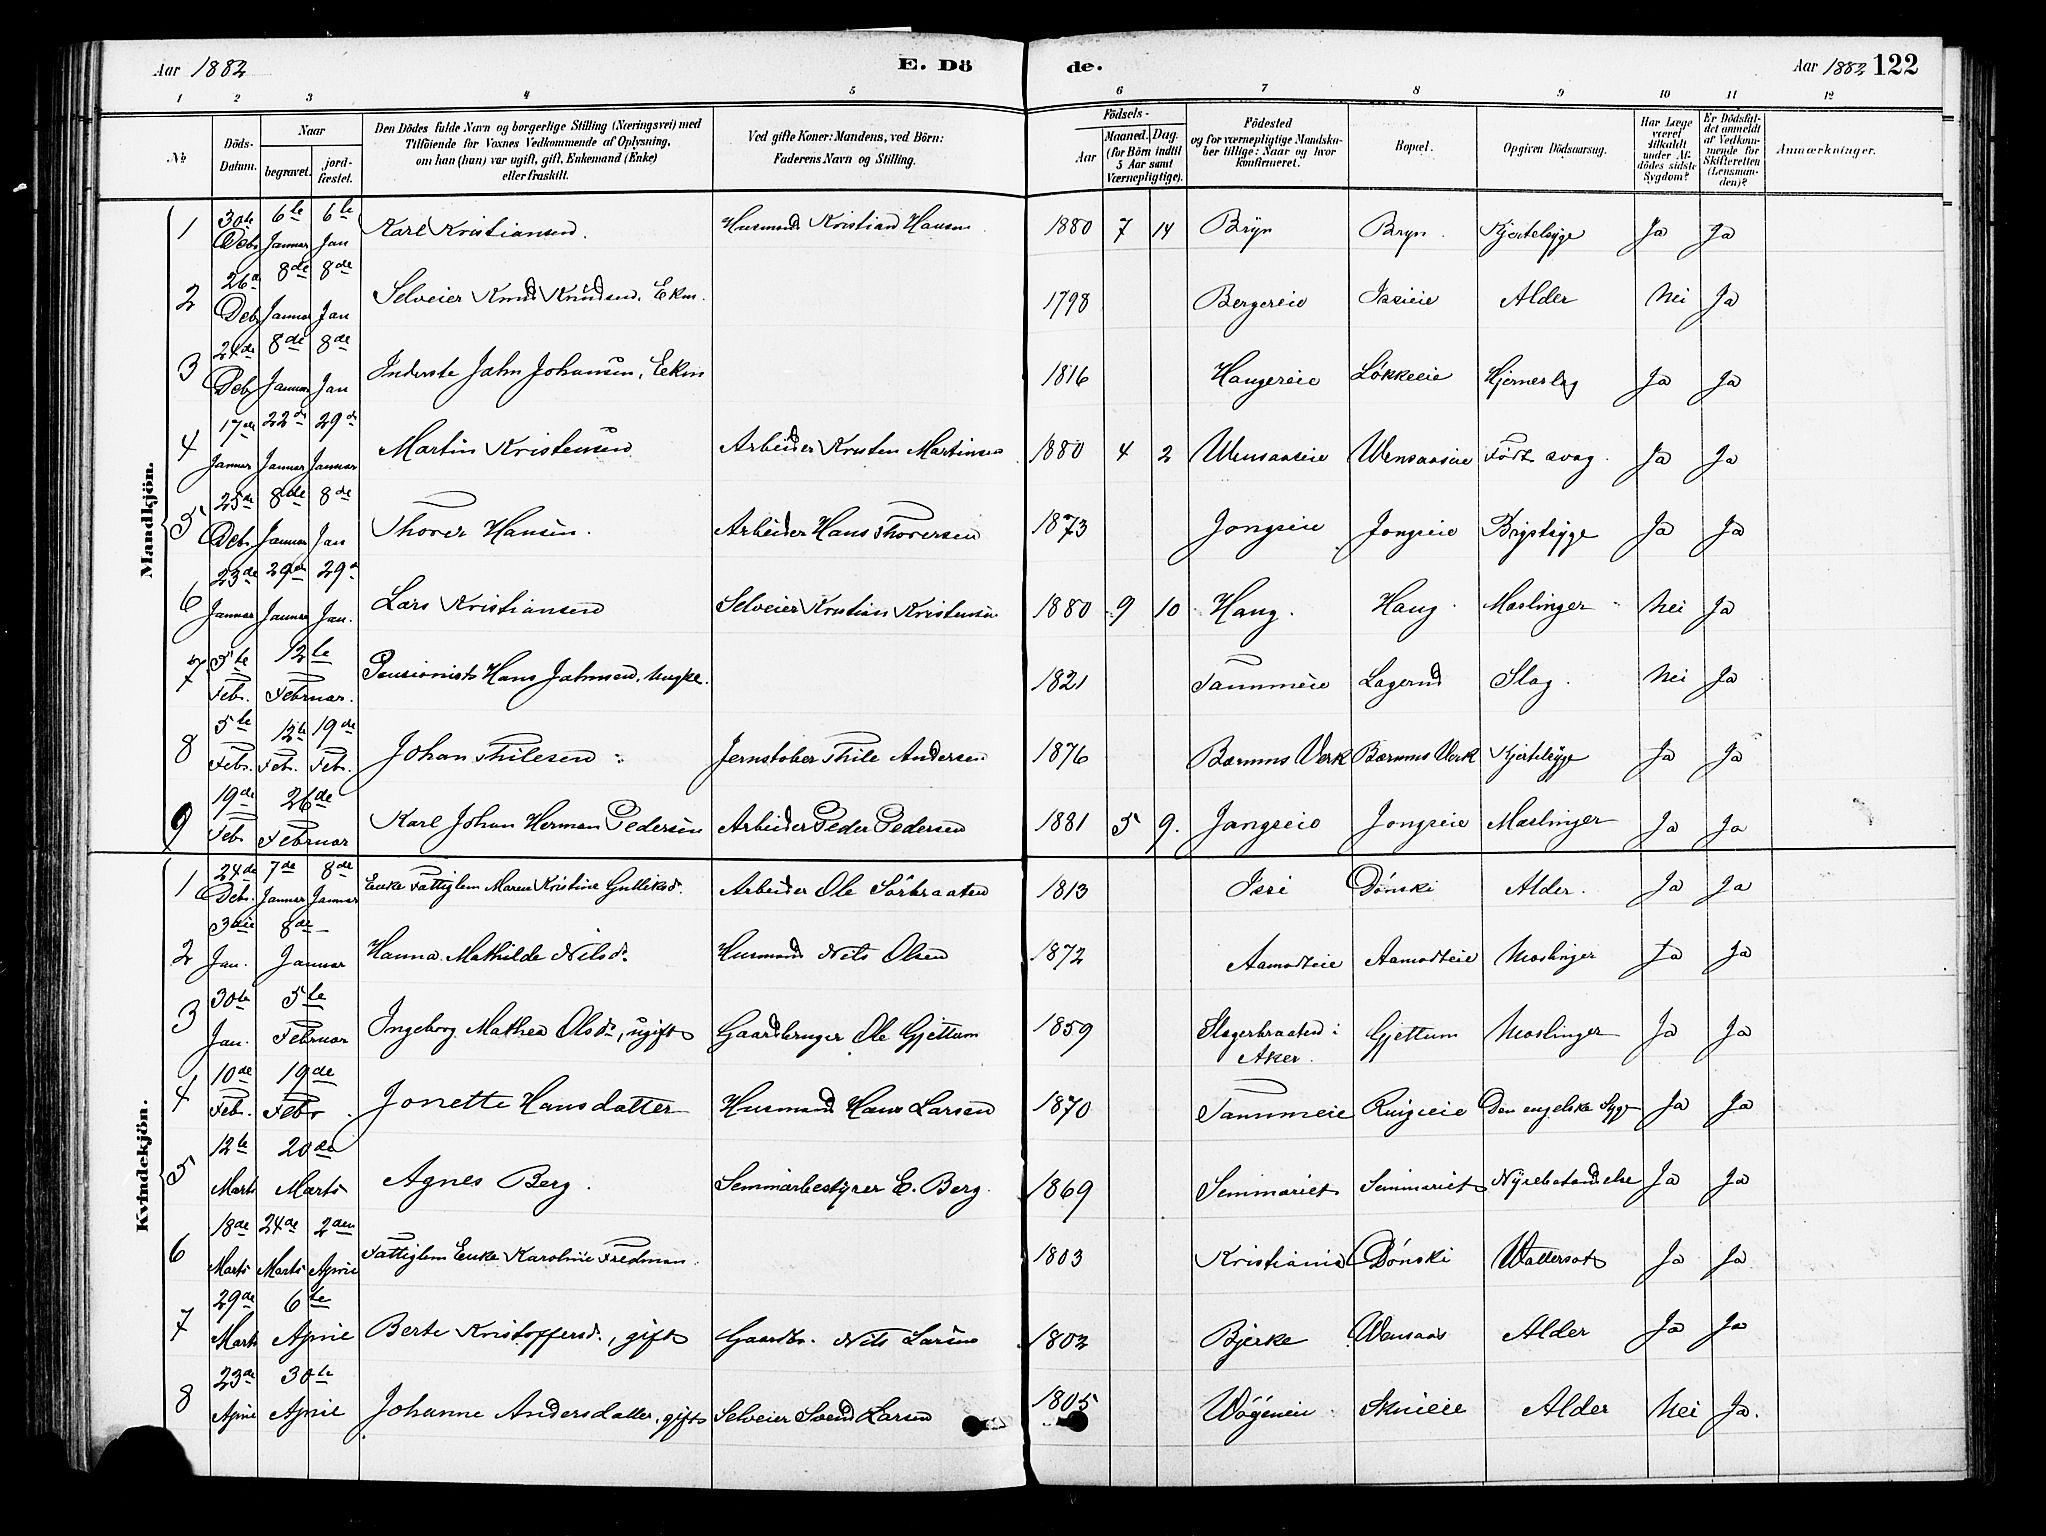 Aar 1882
E. Dö
de.
Aar 1882 122
1 2 3 4 5 6 7 8 9 10 11 12
No
Döds-Datum.
Naar
begravet.
jord-fæstet.
Den Dödes fulde Navn og borgerlige Stilling (Næringsvei) med
Tilföiende for Voxnes Vedkommende af Oplysning,
om han (hun) var ugift, gift, Enkemand (Enke)
eller fraskilt.
Ved gifte Koner: Mandens, ved Börn:
Faderens Navn og Stilling.
Födsels-
Aar
Maaned. Dag.
(for Börn indtil
5 Aar samt
Værnepligtige).
Födested
og for værnepligtige Mandska-
ber tillige: Naar og hvor
konfirmeret.
Bopæl.
Opgiven Dödsaarsag.
Har Læge
været
tilkaldt
under Af-
dödes sidste
Sygdom?
Er Dödsfal-
det anmeldt
af Vedkom-
mende for
Skifteretten
(Lensman-
den)?
Anmærkninger.
Mandkjön.
1 30te Debr 6te Januar 6te Jan Karl Kristiansen. Husmand Kristian Hansen 1880 7 14 Bryn Bryn. Kjertelsyge Ja Ja
2 26de Debr 8de Januar 8de Jan Selveier Knud Knudsen. Ekm. 1798 Bergereie Isieie Alder Nei Ja
3 24de Debr 8de Januar 8de Jan Inderste Jahn Johansen, Eekm 1816 Haugereie Løkkeeie Hjerneslag Ja Ja
4 17de Januar 22de Januar 29de Januar Martin Kristensen Arbeider Kristen Martinsen 1880 4 2 Wensaaseie Wensaaseie Født svag. Ja Ja
5 25de Debr 8de Januar 8de Jan Thorer Hansen. Arbeider Hans Thorersen 1873 Jongseie Jongseie Brystsyge Ja Ja
6 23de Januar 29de Januar 29de Jan. Lars Kristiansen Selveier Kristian Kristensen 1880 9 10 Haug. Haug. Mæslinger Nei Ja
7 5te Feb. 12te Februar. Pensionist Hans Jahnsen. Ungke. 1821 Tanumeie Lagerud Slag. Nei Ja
8 5te Febr. 12te Feb. 19de Feb. Johan Thilesen Jernstober Thile Andersen 1876 Bærums Verk Bærums Verk Kjertelsyge Ja Ja
9 19de Feb. 26de Februar Karl Johan Herman Pedersen Arbeider Peder Pedersen 1881 5 9. Jongseie Jongseie Mæslinger Ja Ja
Kvindekjön.
1 24de Debr. 7de Januar 8de Januar Enke Fattiglem Maren Kristine Gulliksd. Arbeider Ole Sørbraaten 1813 Isi Dønski Alder. Ja Ja
2 3die Jan. 8de Januar Hanna Mathilde Nilsd. Husmand Nils Olsen 1872 Aamodteie Aamodteie Mæslinger Ja Ja
3 30te Jan. 5te Februar Ingeborg Mathea Olsdr, ugift Gaardbruger Ole Gjettum 1859 Slagerbraaten i Aker. Gjettum Mæslinger Ja Ja
4 10de Feb. 19de Febr. Jonette Hansdatter Husmand Hans Larsen 1870 Tanumeie Ringieie Den engelske Syge Ja Ja
5 12te Marts 20de Marts Agnes Berg. Seminarbestyrer E. Berg. 1869 Seminariet Seminariet Nyrebetændelse Ja Ja
6 18de Marts 24de Marts 2den April Fattiglem Enke Karoline Fredman. 1803 Kristiania Dønski Wattersot Ja Ja
7 29de Marts 6te April Berte Kristoffersd., gift Gaardbr. Nils Larsen 1802 Bjerke Wensaas Alder Ja Ja
8 23de April 30te April Johanne Andersdatter, gift Selveier Svend Larsen 1805 Wøyeneie Skuieie Alder Nei Ja.